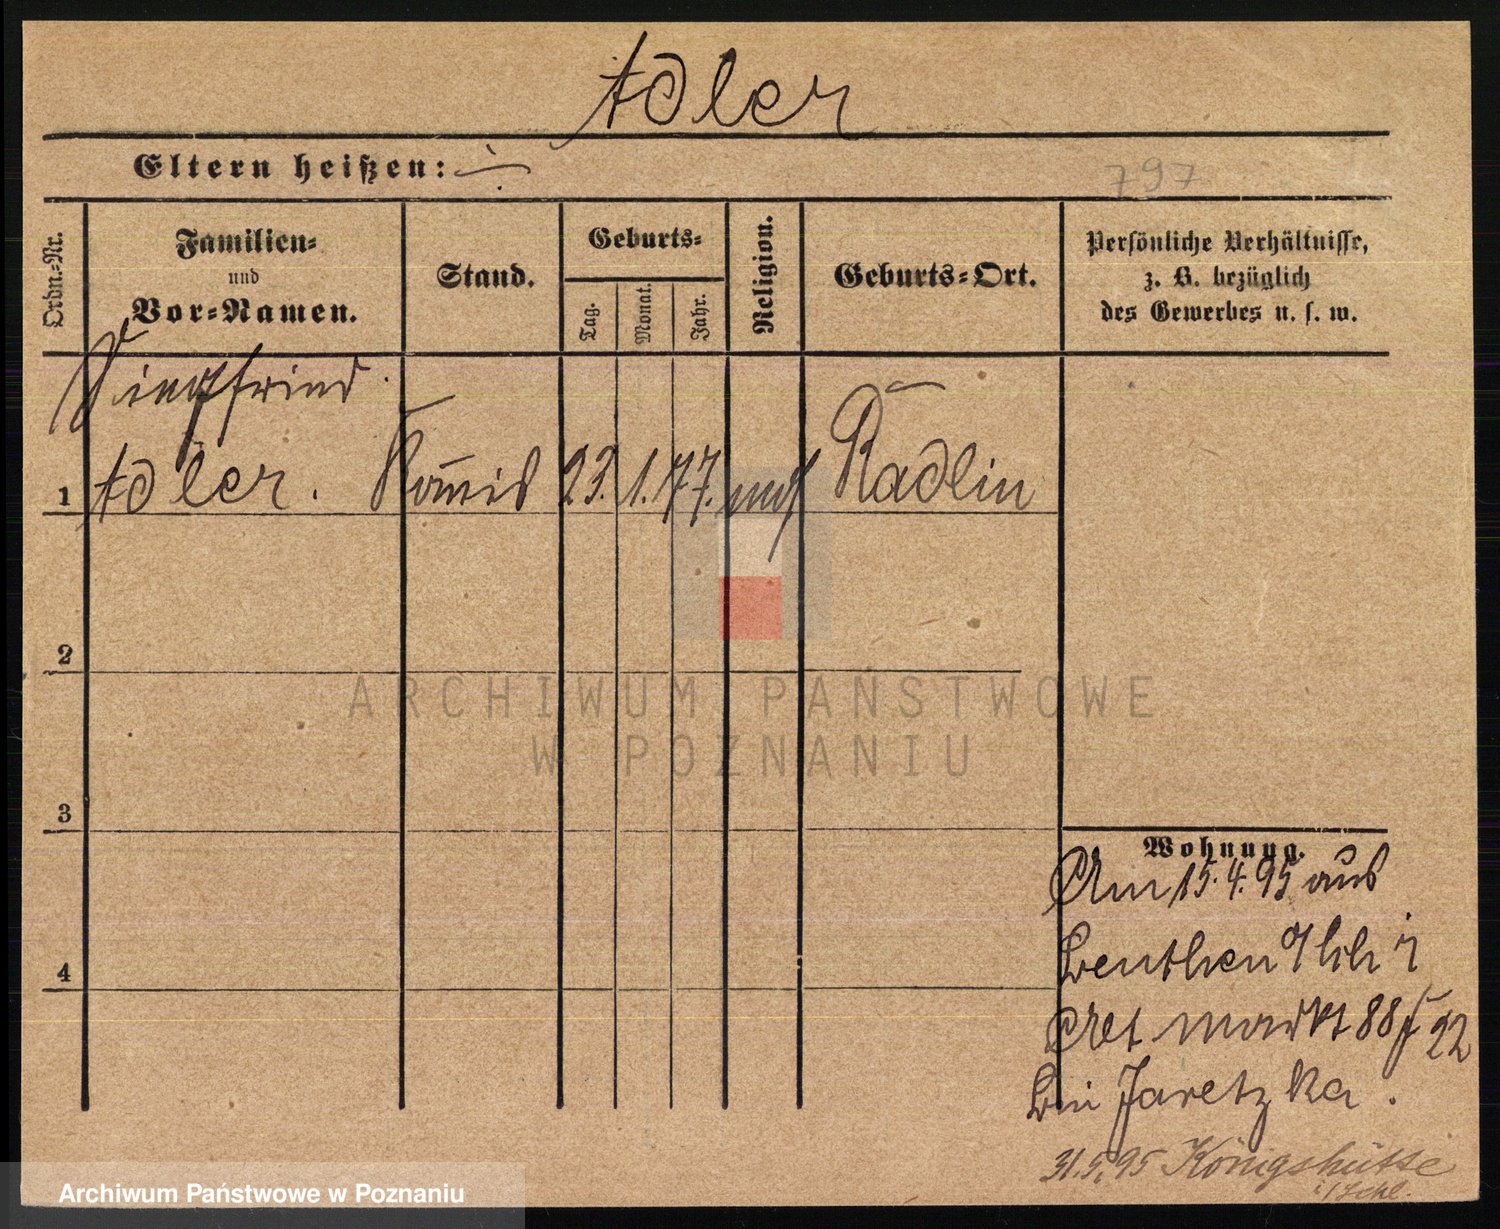 Adler
Eltern heißen: ÷
797
Ordn.-Nr.
Familien-
und
Vor-Namen.
Stand.
Geburts-
Tag.
Monat.
Jahr.
Religion.
Geburts-Ort.
Persönliche Verhältnisse,
z. B. bezüglich
des Gewerbes u. s. w.
Siegfried
1 Adler. Kom̅is 23. 1. 77. mos Radlin
2
3
4
ARCHIWUM PAŃSTWOWE
W POZNANIU
Wohnung.
Am 15.4.95 aus
Beuthen O/Sch
Alt markt 88
Bei Jaretzka.
31.5.95 Königshütte
i/Schl.
Archiwum Państwowe w Poznaniu